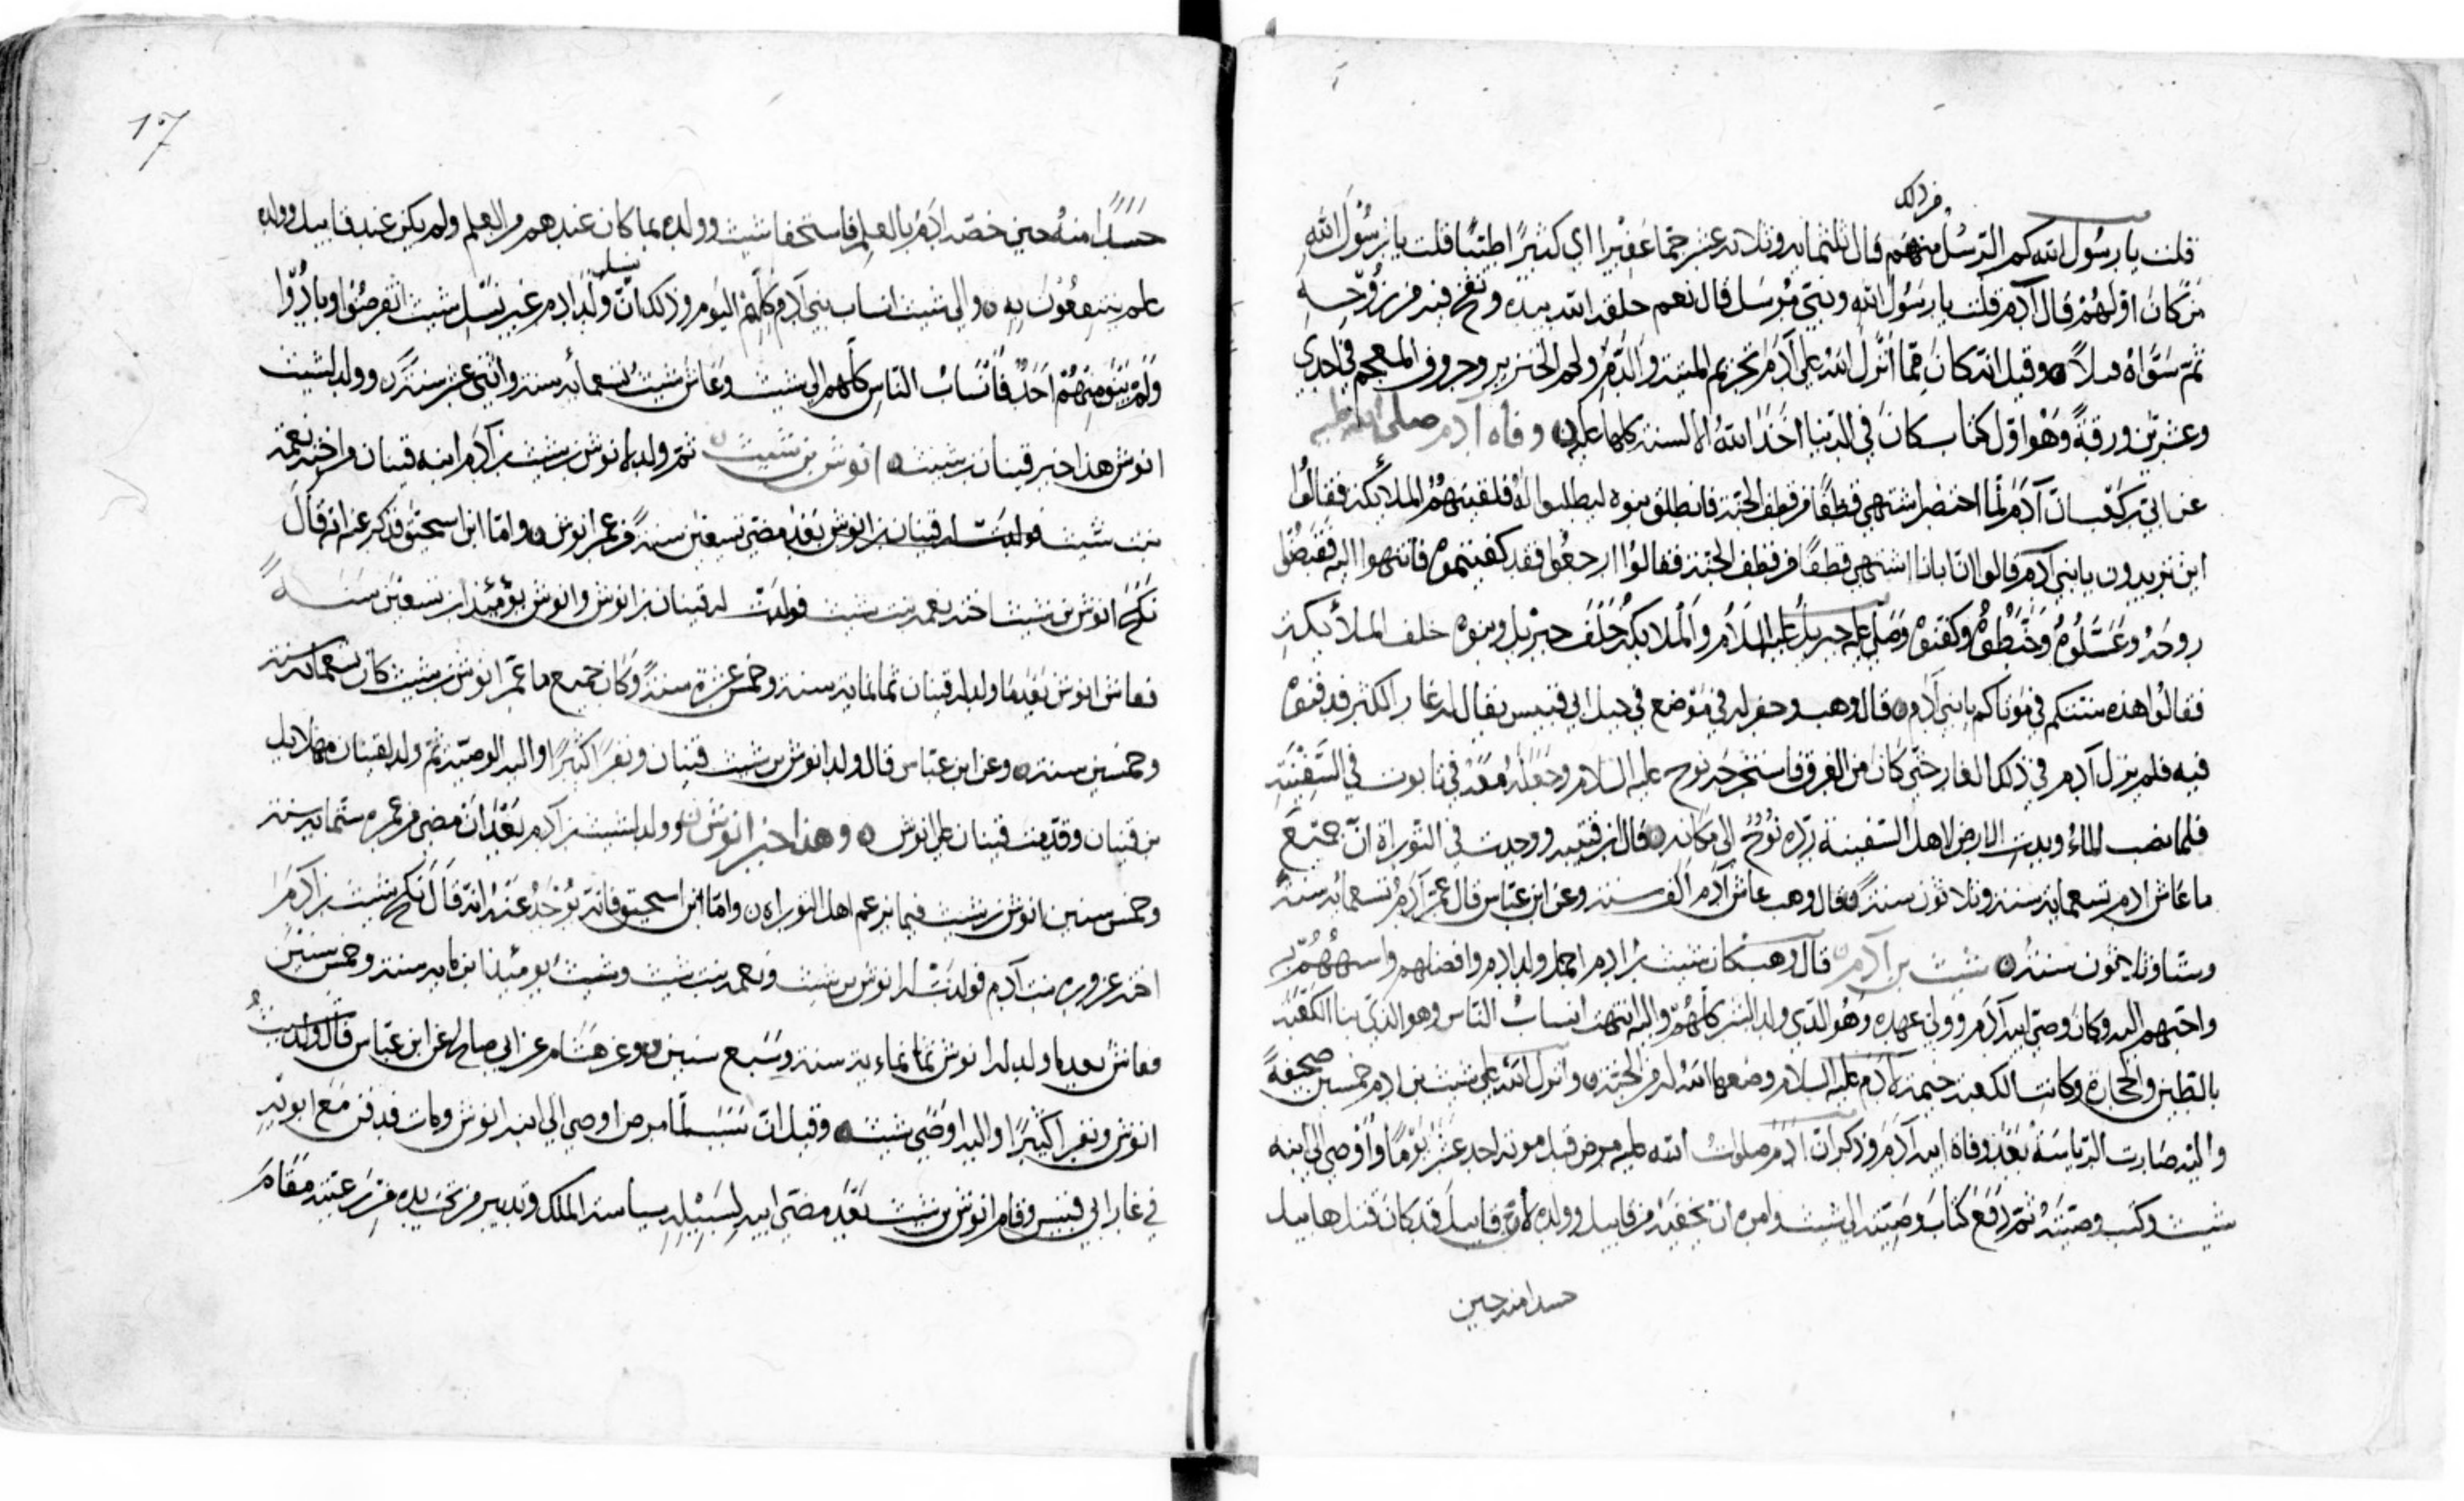 من ذلك
قلت يا رسول الله كم الرسل منهم قال ثلثمايه وثلاثه عشر جمّا غفيرا اي كثيرًا طيبًا قلت يا رسُول الله
من كان اولهُمْ قال آدم قلت يا رسُول الله ونبيّ مُرسَل قال نعم خلقه الله بيده ونفخ فيه من روُحه
ثم سَوّاهُ قبلاً ه وقيل انّه كانَ ممّا انزل اللهُ على آدمَ تحريم الميتة والدّم ولحم الخنزير وحروف المعجم في احدي
وعشرين ورقةً وَهْوَ اوّل كتاب كانَ في الدنيا اخذ اللهُ الالسنة كلها عليه ه وفاه آدم صلى الله عليه
عن ابي بن كعب انّ آدَمَ لمّا احتضر اشتهى قطفًا من قطف الجنة فانطلق بنوه ليطلبوا لهُ فلقيتهُمُ الملائكة فقالُوا
اين تريدون يا بني آدم قالوا انّ ابانا اشتهي قطفًا من قطف الجنة فقالُوا ارجعُوا فقد كفيتموهُ فانتهوا اليه فقبضُوا
روحَهُ وغسَّلُوهُ وحَنّطُوهُ وكفنوهُ وصَلّى عليه جبريل عليه السلام والملايكة خلفَ جبريل وبنوهُ خلف الملائكة
فقالُوا هذه سنتكم في موتاكم يا بني آدم ه قال وهب وحفر له في مَوْضع في جبل ابي قبيس يقال له غار الكنز فدفنوهُ
فيه فلم يزل آدم في ذلك الغار حتّى كان زمن الغرق فاستخرجَه نوح عليه السلام وجَعَلَهُ معَهُ في تابوت في السَّفيْنَة
فلما نضب الماءُ وبدت الارض لاهل السّفينة ردّه نُوْحٌ الى مكانه ه قال ابن قتيبه ووجدت في التّوراة انّ جميْعَ
ما عَاش ادم تسعمايه سنة وثلاثون سنة فقال وهب عاش آدم الف سنة وعن ابن عبّاس قال عمر آدمُ تسعمائه سنةً
وستّا وثلثون سنة ه شيث بن آدم قال وهب كان شيث بن ادم اجمل ولد ادم وافضلهم واشبههُمْ به
واحبّهم اليه وكان وصيّ ابيه آدمَ ووليّ عهده وَهُو الذي ولد البشر كلّهُم واليه انتهت انسابُ النّاس وهو الذي بنا الكعْبَة
بالطين والحجارة وكانت الكعبة خيمة لآدم عليه السلام وضعها اللهُ له من الجنة وانزل الله على شيث بن ادم خمسين صحيفةً
واليْه صَارت الرّياسَةُ بعْدَ وفاة ابيه آدمَ وذكر انّ آدَمَ صلوات الله عليه مرض قبل موته احد عشَرَ يَوْمًا وَأوْصى الى ابنه
شيث وكتب وصيّتَهُ ثمّ دَفعَ كتاب وَصيّته الى شيث وامره ان يخفيَهُ من قابيل وولده لأنّ قابيل قد كان قتل هابيل
حسدا منه حين
17
حسَدًا منهُ حين خصّه ادَمُ بالعلم فاستخفا شيث وولده بما كان عندهم من العلم ولم يكن عند قابيل وولده
علم ينتفعُونَ به ه والى شيث انساب بني آدم كلّهم اليَوم وذلك انّ نسل ولد ادم غير نَسْل شيث انقرضُوا وبادُوا
وَلمْ يبْقَ منهُمْ احَدٌ فأنسَابُ النّاس كلهم الى شيث وعَاش شيث تسعمائه سنة واثنتي عشرَ سنةً ه وولد لشيث
انوش هذا خبر قينان بن شيث ه انوش بن شيث ثمّ ولد لانوش بن شيث بن آدم ابنه قينان من اخته نعمة
بنت شيث فولدت له قينان بن انوش بَعْدَ مضيّ تسعين سنةً من عمر انوش ه وامّا ابن اسحق فذكر عنه انه قال
نكح انوش بن شيث اخته نعمه بنت شيث فولدت له قينان بن انوش وانوش يومئذ ابن تسعين سَنَةً
فعاش انوش بعدما ولد له قينان ثمانمايه سنه وخمس عشرة سنةً وكان جميع ما عُمّر انوش بن شيث كان تسعمايه سنه
وخمسين سنة ه وعن ابن عبّاس قال ولد انوش بن شيث قينان ونفرًا كثيرًا واليه الوصيّة ثمّ ولد لقينان مهلايل
بن قينان وقدمت قينان على انوش ه وهذا خبر انوش وولد لشيث بن آدم بعْدَ انْ مضي من عمره ستّمايه سنة
وخمس سنين انوش بن شيث فيما يزعم اهل التوراه ه وامّا ابن اسحق فانّه يُؤخذُ عَنْهُ انّه قال نكح شيث بن آدمَ
اخته عزوره بنت آدم فولدَتْ له انوش بن شيث ونعمه بنت شيث وشيث يومئذ ابن مايه سنة وخمس سنين
فعاش بعدما ولد له انوش ثمانمائة سنة وَسَبع سنين ه وعن هشام عن ابي صالح عن ابن عبّاس قال ولد شيثُ
انوش ونفرا كثيرًا واليه اوصَى شيث ه وقيل انّ شيث لمّا مرض اوصى الى ابنه انوش ومات فدفن مَعَ ابويه
في غار ابي قبيس وقام انوش بن شيث بعْدَ مضيّ ابيه لسَبيْله بسياسة الملك وتدبير من تحت يده من رَعيّته مَقامَ